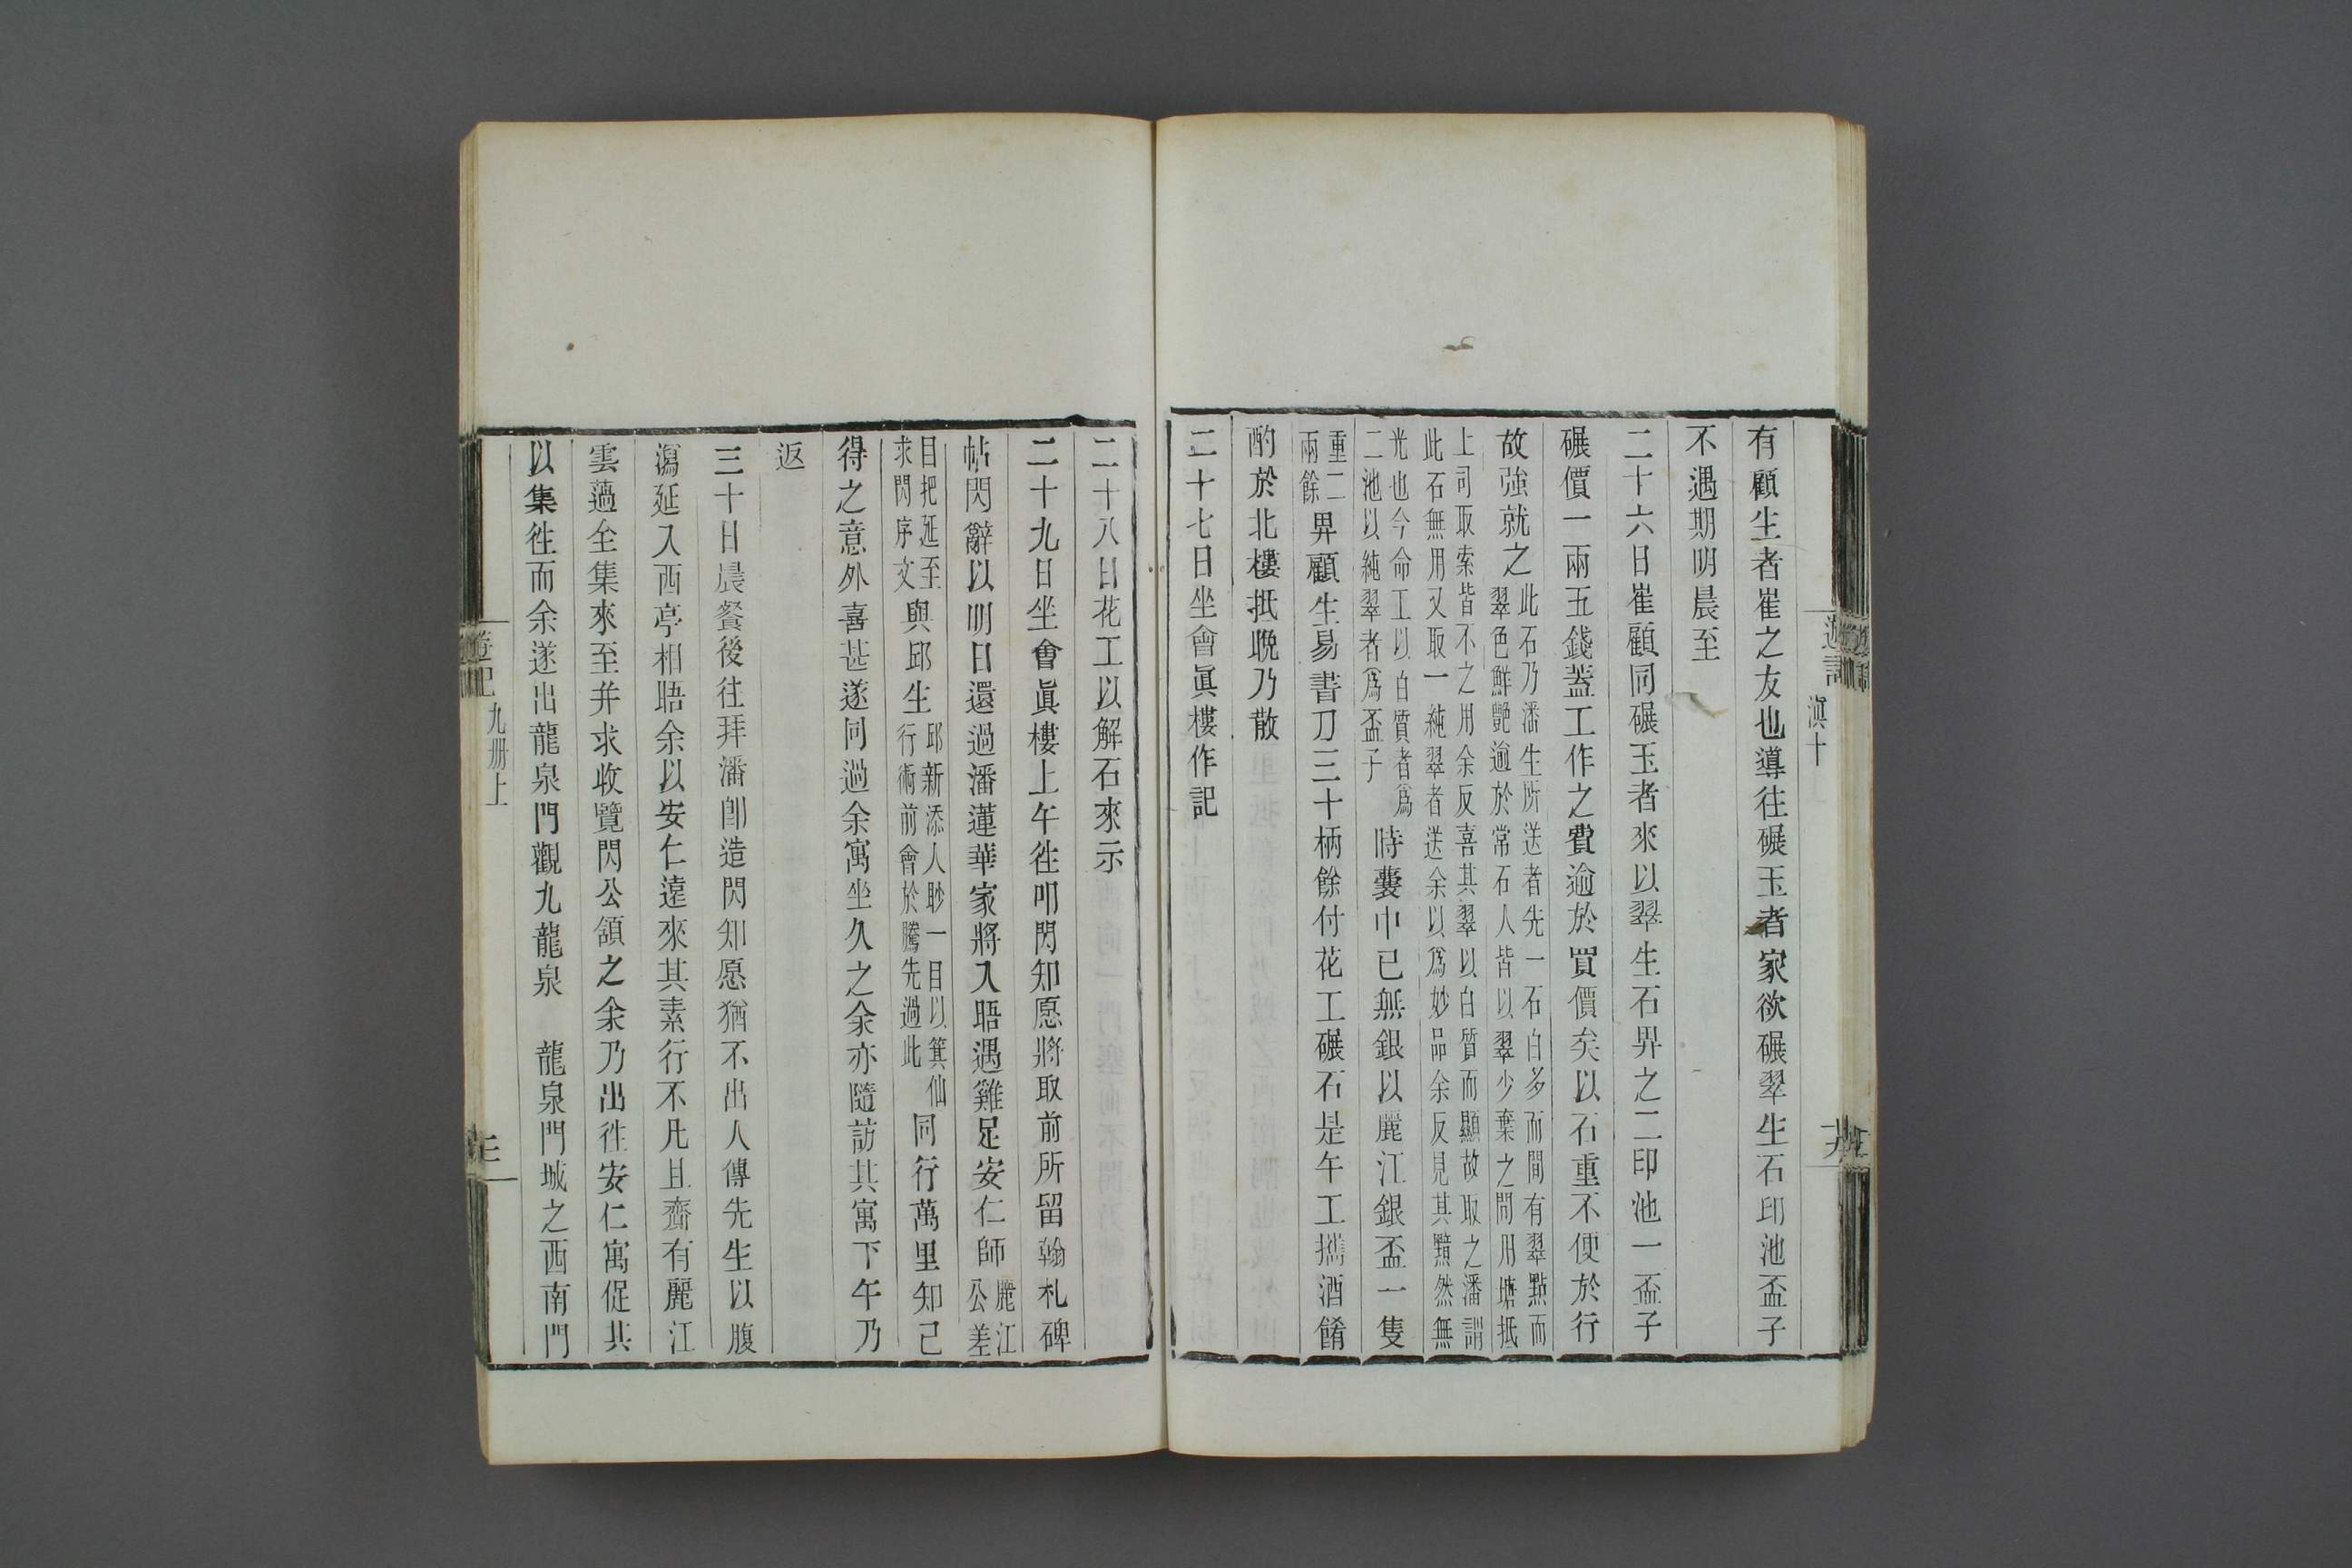 遊記
滇十
有顧生者崔之友也導往碾玉者家欲碾翠生石印池盃子
不遇期明晨至
二十六日崔顧同碾玉者來以翠生石畀之二印池一盃子
碾價一兩五錢蓋工作之費逾於買價矣以石重不便於行
故強就之此石乃潘生所送者先一石白多而間有翠點而
翠色鮮艷逾於常石人皆以翠少棄之間用搪抵
上司取索皆不之用余反喜其翠以白質而顯故取之潘謂
此石無用又取一純翠者送余以爲妙品余反見其黯然無
光也今命工以白質者爲
二池以純翠者爲盃子時囊中已無銀以麗江銀盃一隻
重二
兩餘畀顧生易書刀三十柄餘付花工碾石是午工攜酒餚
酌於北樓抵晚乃散
二十七日坐會眞樓作記
二十八日花工以解石來示
二十九日坐會眞樓上午徃叩閃知愿將取前所留翰札碑
帖閃辭以明日還過潘蓮華家將入晤遇雞足安仁師麗江
公差
目把延至
求閃序文與邱生邱新添人眇一目以箕仙
行術前會於騰先過此同行萬里知己
得之意外喜甚遂同過余寓坐久之余亦隨訪其寓下午乃
返
三十日晨餐後往拜潘卽造閃知愿猶不出人傳先生以腹
瀉延入西亭相晤余以安仁遠來其素行不凡且齎有麗江
雲薖全集來至并求收覽閃公頷之余乃出徃安仁寓促其
以集徃而余遂出龍泉門觀九龍泉 龍泉門城之西南門
遊記
九册上